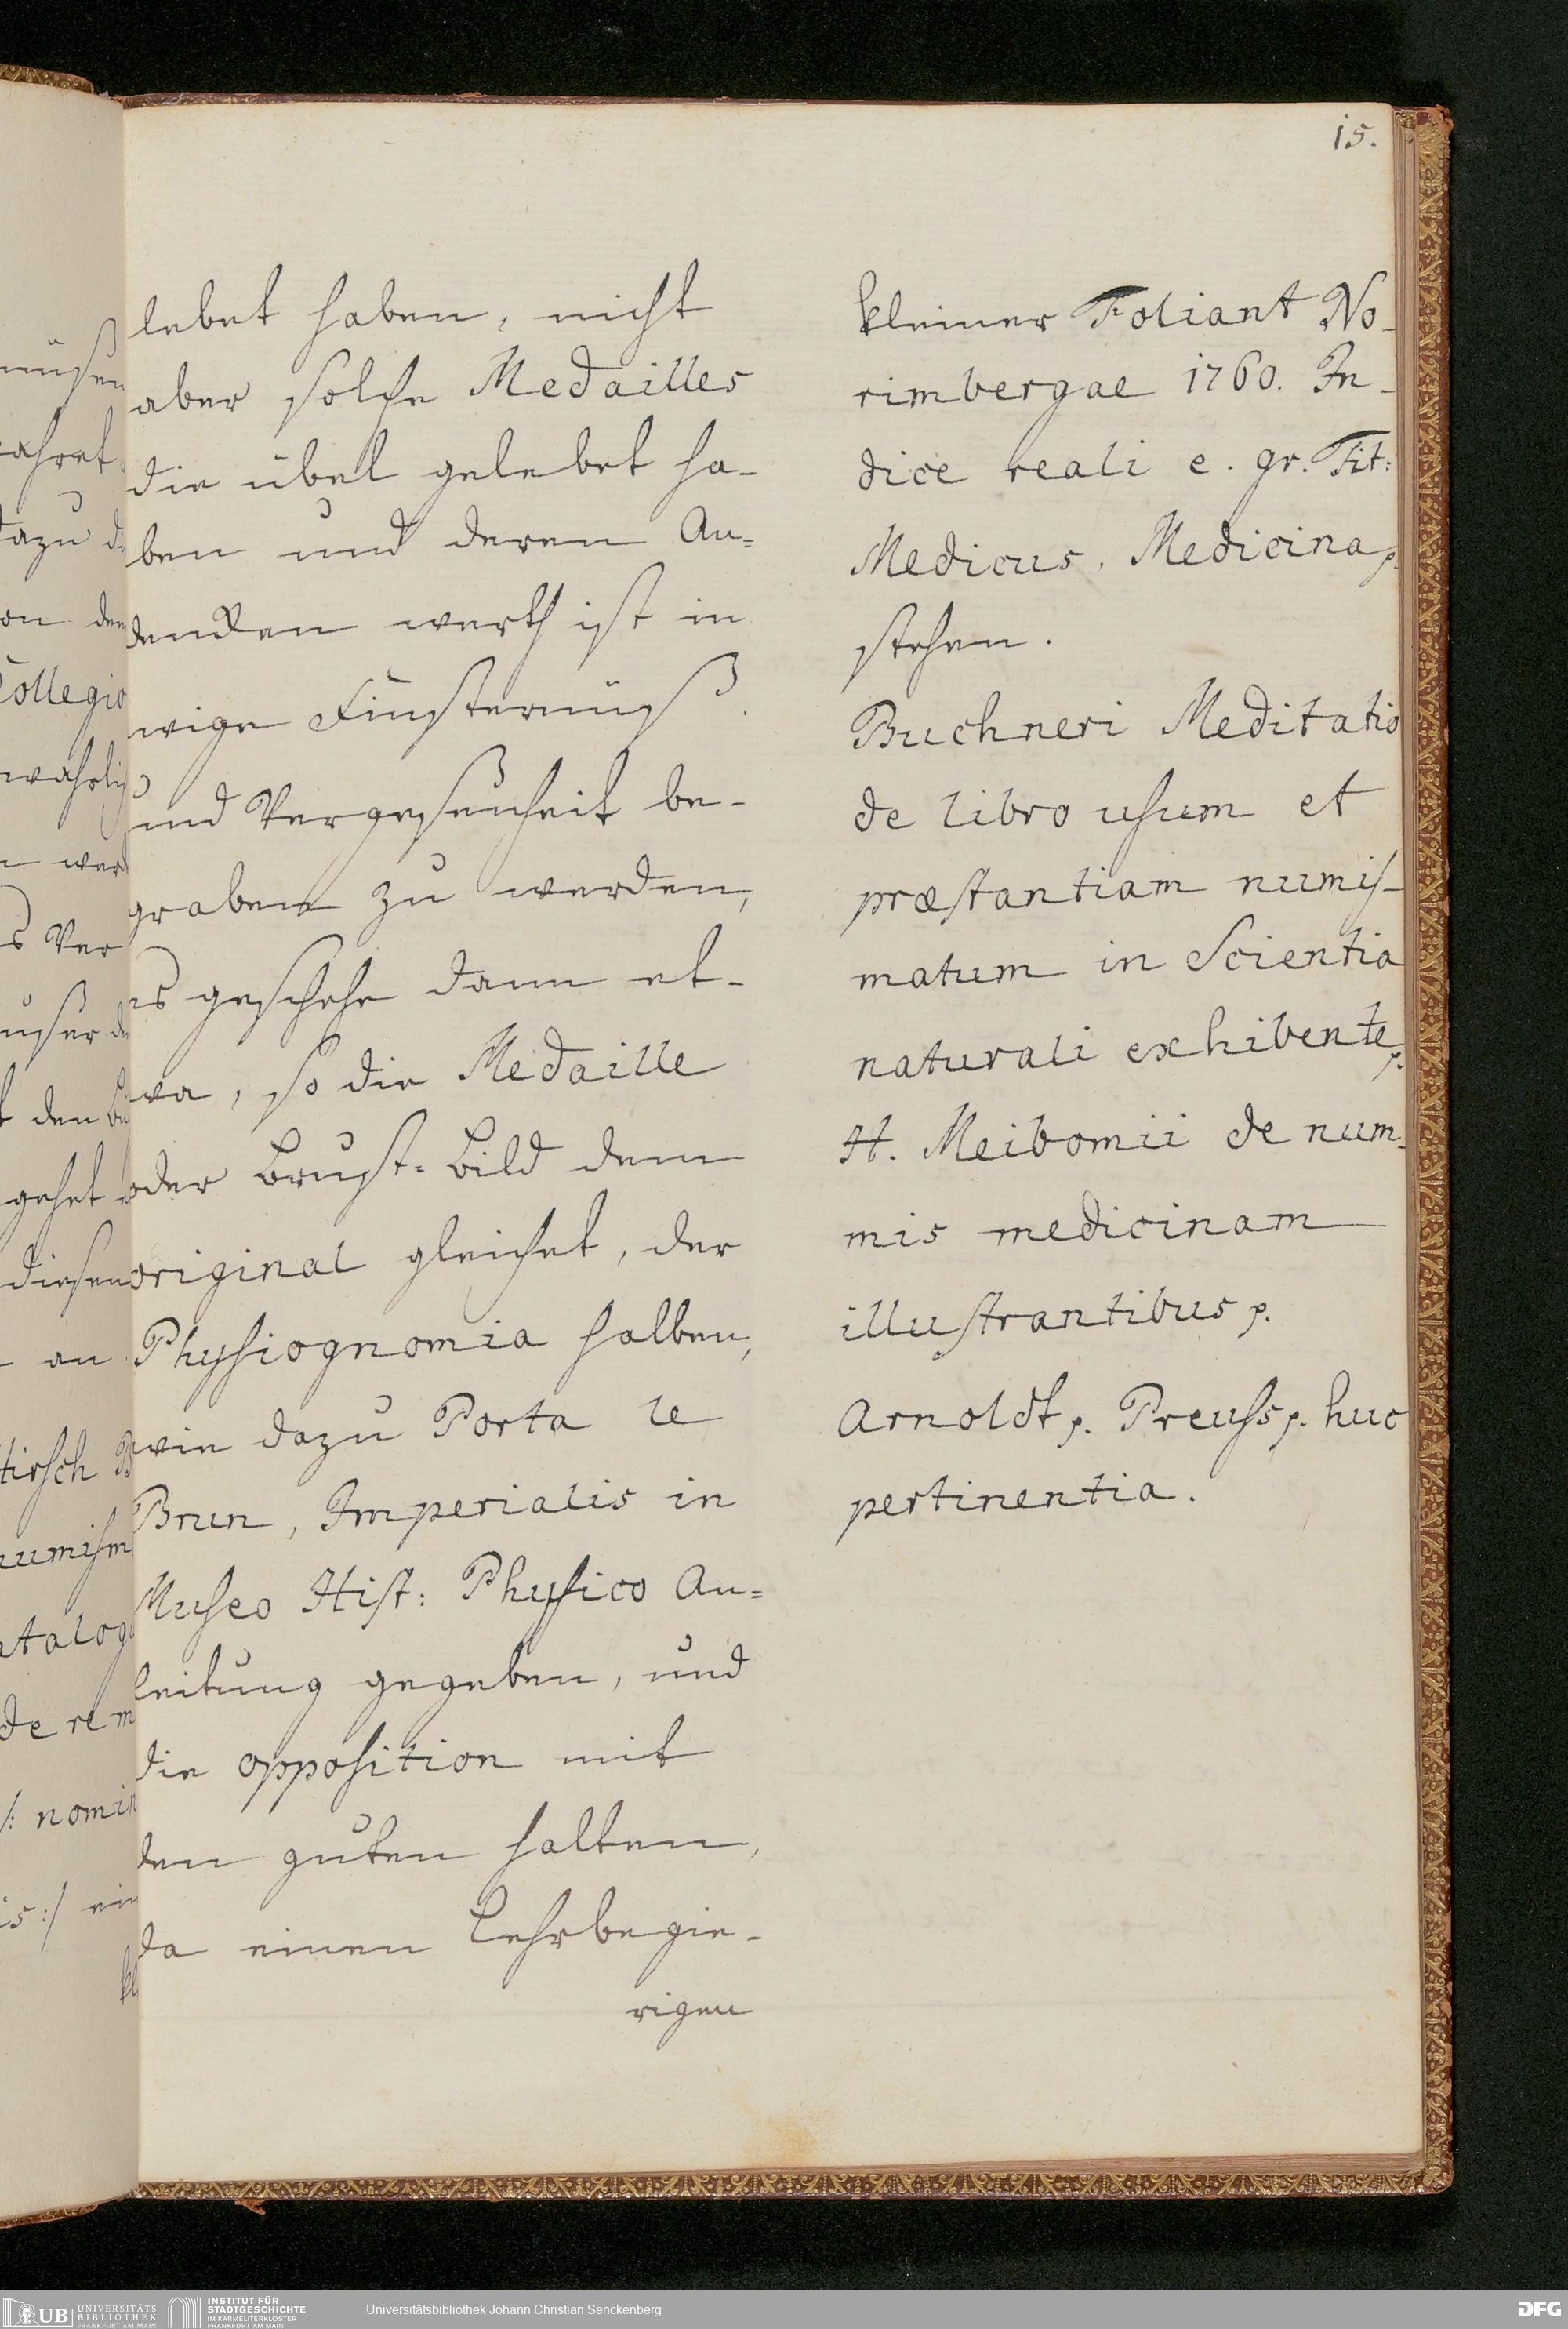 15.
lebet haben, nicht
aber solche Medailles
die übel gelebet ha-
ben und deren An=
dencken werth ist in
ewige Finsternüß
und Vergeßenheit be-
graben zu werden,
es geschehe dann et-
wa, so die Medaille
oder Brust=Bild dem
original gleichet, der
Physiognomia halben,
wie dazu Porta le
Brun, Imperialis in
Museo Hist: Physico An=
leitung gegeben, und
die opposition mit
den guten halten,
da einen Lehrbegie-
rigen
kleiner Foliant No-
rimbergae 1760. In-
dice reali e. gr. Tit:
Medicus. Medicina p.
stehen.
Buchneri Meditatio
de libro usum et
præstantiam numis-
matum in Scientia
naturali exhibente p.
H. Meibomii de num-
mis medicinam
illustrantibus p.
Arnoldt p. Preuss p. huc
pertinentia.
müßen
wahret
dazu
on den
Collegio
wahrlich
n
Ver
den
gehet
diesen
an
Hirsch
numism
atalog
de re m
/: nomin
is:/ ein
kl
UB UNIVERSITÄTS
BIBLIOTHEK
FRANKFURT AM MAIN
INSTITUT FÜR
STADTGESCHICHTE
IM KARMELITERKLOSTER
FRANKFURT AM MAIN
Universitätsbibliothek Johann Christian Senckenberg
DFG